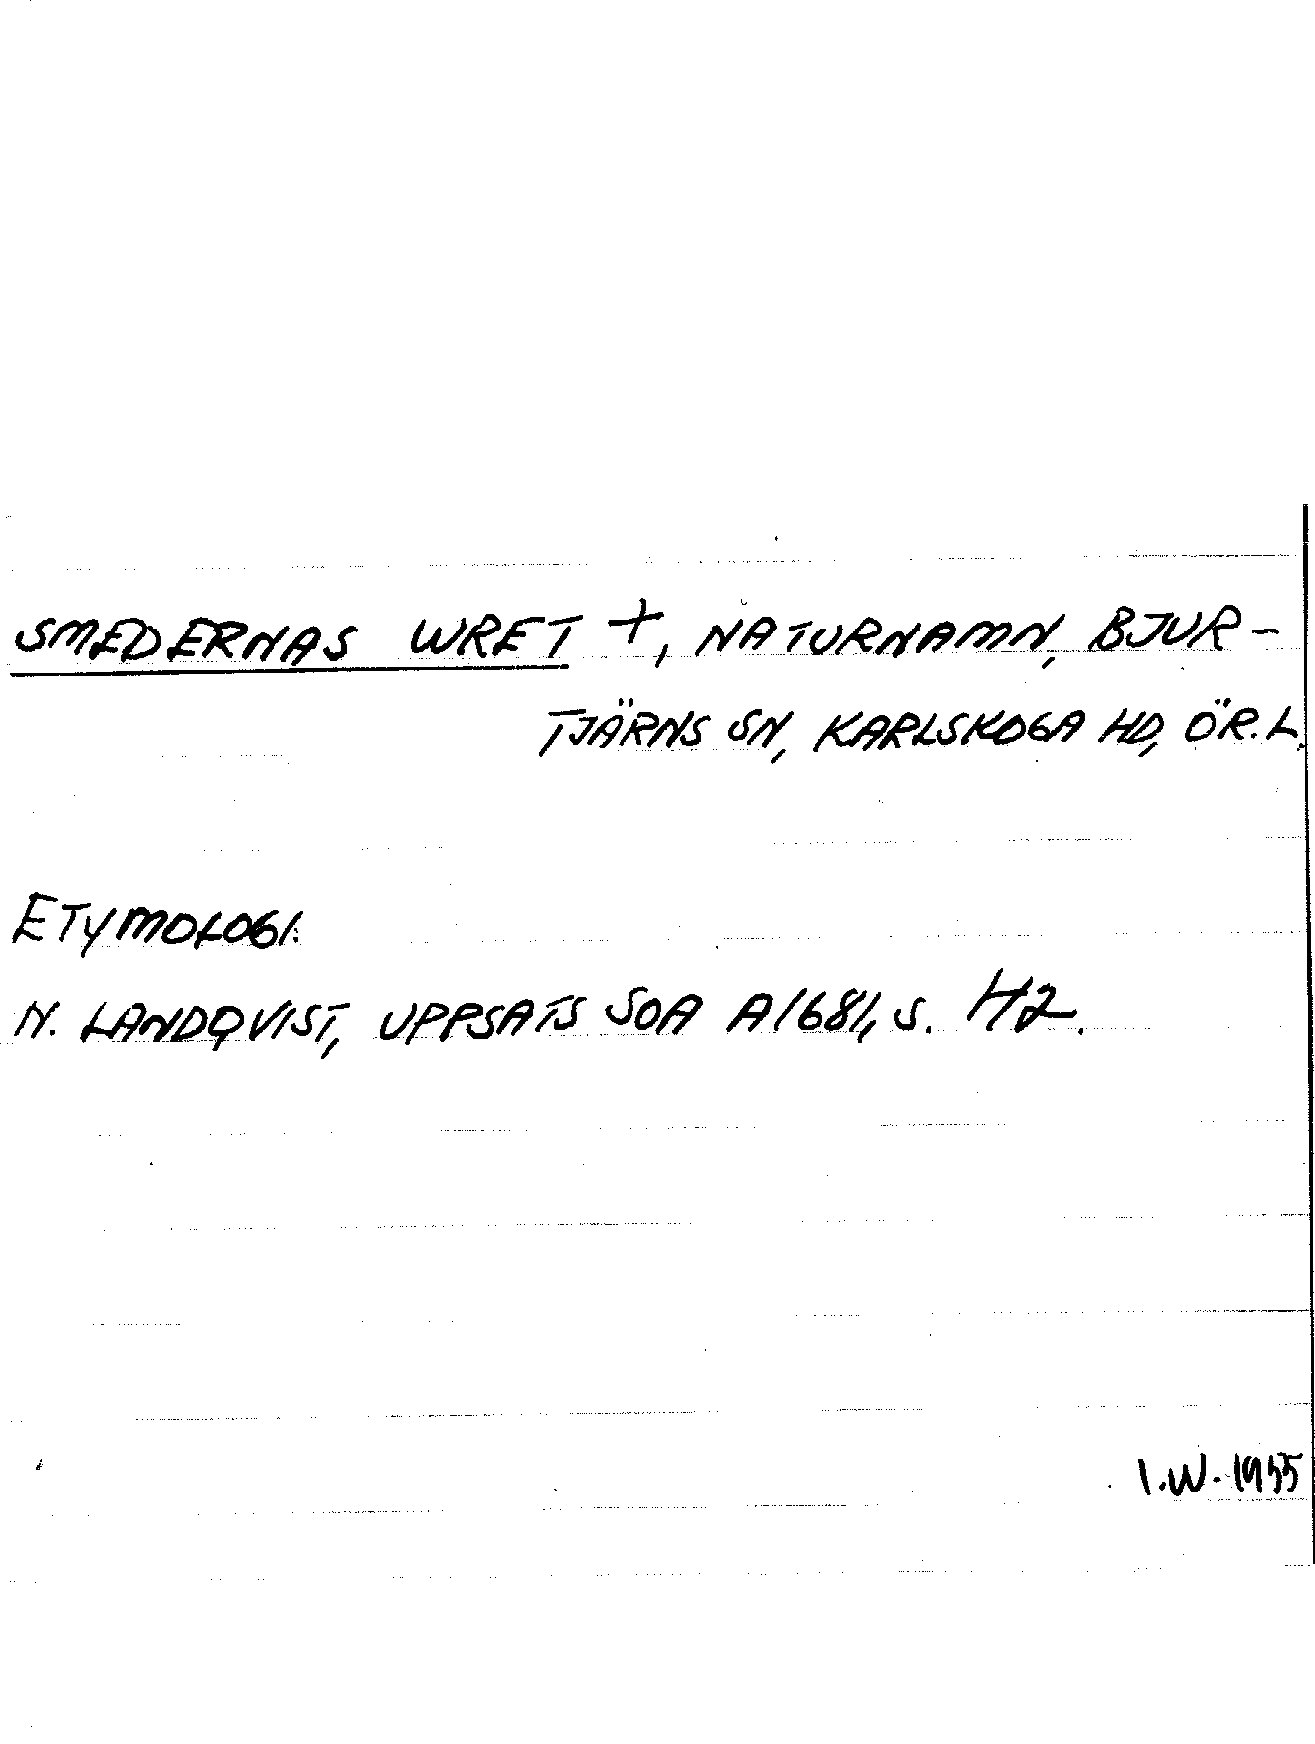 SMEDERNAS WRET +, NATURNAMN, BJUR-
TJÄRNS SN, KARLSKOGA HD, ÖR. L.
ETYMOLOGI.
N. LANDQVIST, UPPSATS SOA A1681, S. 42.
I.W. 1955